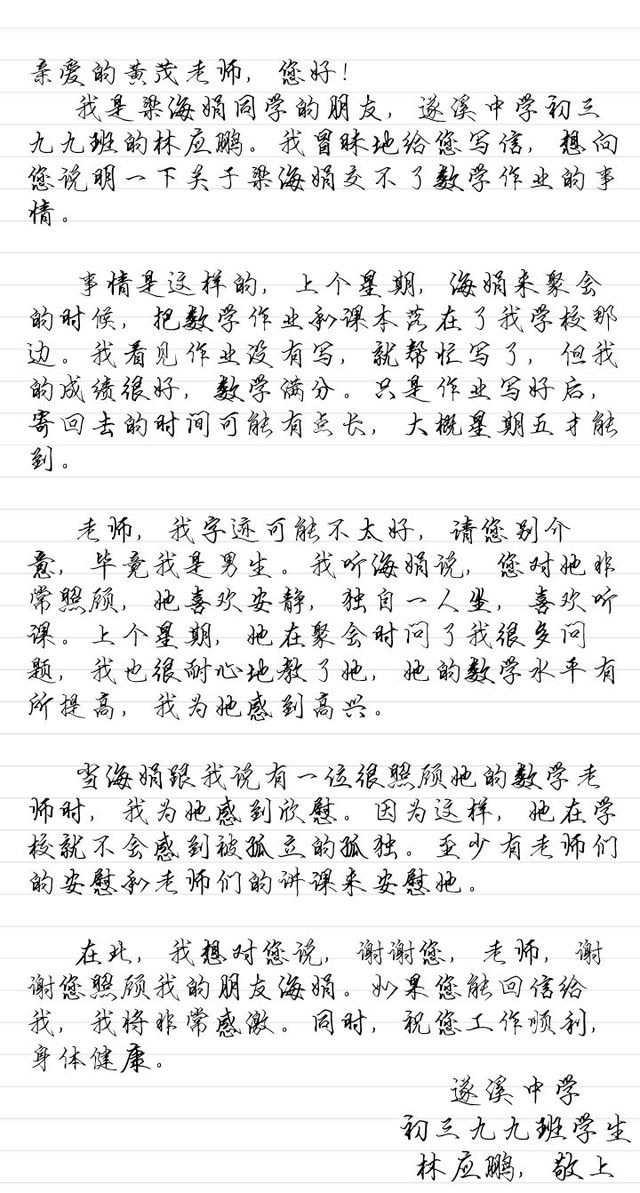 亲爱的黄茂老师，您好！
我是梁海娟同学的朋友，遂溪中学初三
九九班的林应鹏。我冒昧地给您写信，想向
您说明一下关于梁海娟交不了数学作业的事
情。
事情是这样的，上个星期，海娟来聚会
的时候，把数学作业和课本落在了我学校那
边。我看见作业没有写，就帮忙写了，但我
的成绩很好，数学满分。只是作业写好后，
寄回去的时间可能有点长，大概星期五才能
到。
老师，我字迹可能不太好，请您别介
意，毕竟我是男生。我听海娟说，您对她非
常照顾，她喜欢安静，独自一人坐，喜欢听
课。上个星期，她在聚会时问了我很多问
题，我也很耐心地教了她，她的数学水平有
所提高，我为她感到高兴。
当海娟跟我说有一位很照顾她的数学老
师时，我为她感到欣慰。因为这样，她在学
校就不会感到被孤立的孤独。至少有老师们
的安慰和老师们的讲课来安慰她。
在此，我想对您说，谢谢您，老师，谢
谢您照顾我的朋友海娟。如果您能回信给
我，我将非常感激。同时，祝您工作顺利，
身体健康。
遂溪中学
初三九九班学生
林应鹏，敬上